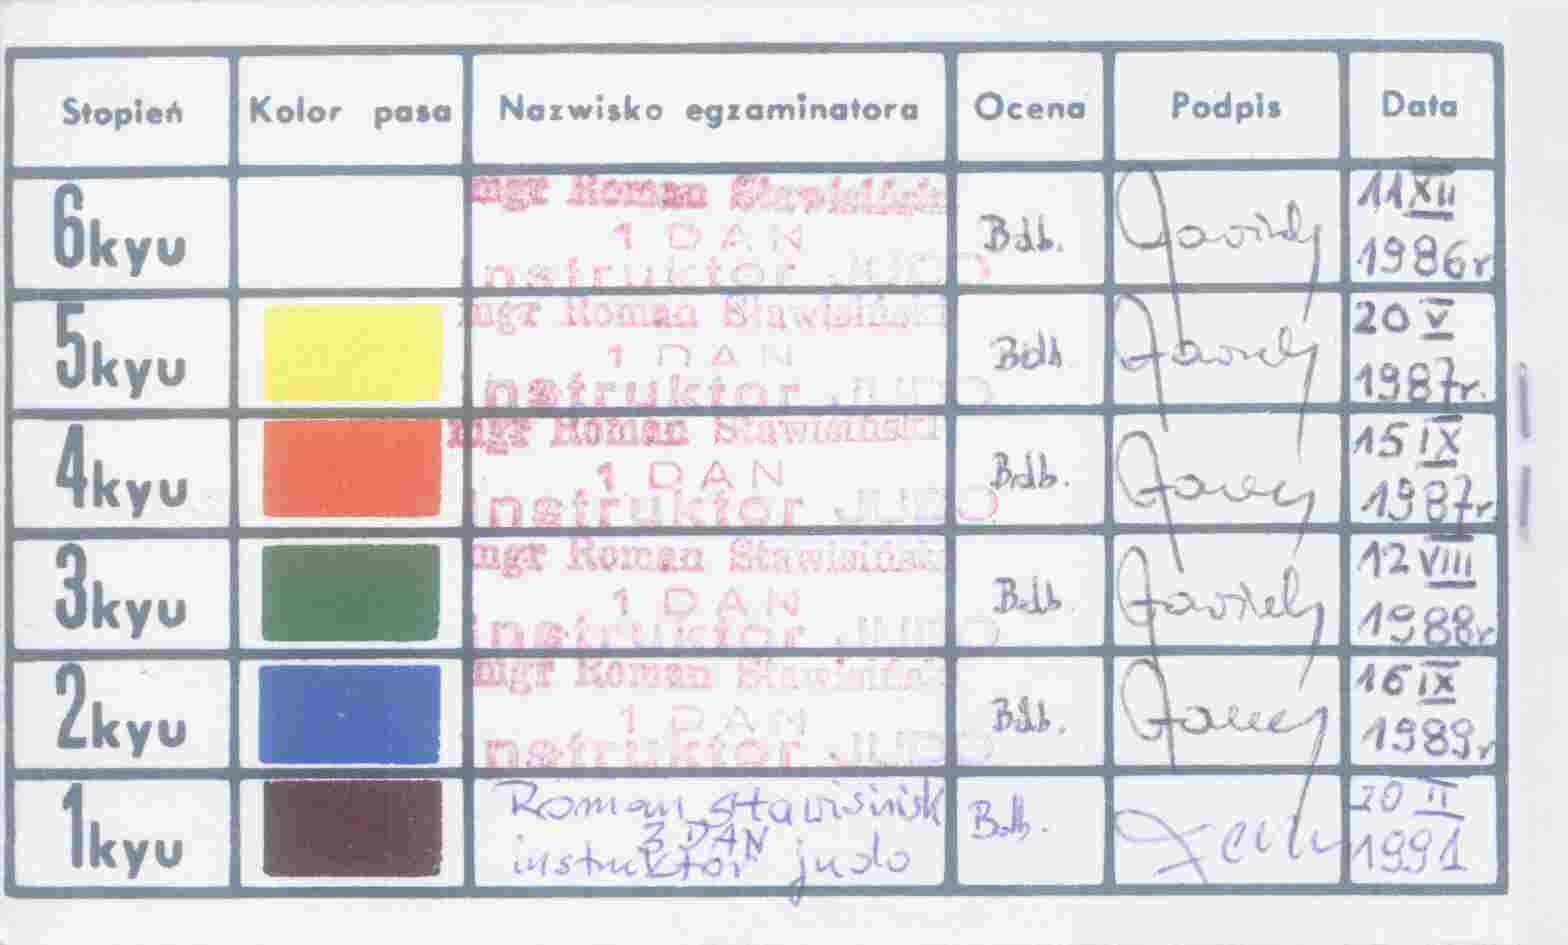 Stopień Kolor pasa Nazwisko egzaminatora Ocena Podpis Data
6kyu mgr Roman Stawisiński Bdb. 11 XII
1 DAN
instruktor JUDO 1986r
5kyu mgr Roman Stawisiński Bdb. 20 V
1 DAN
instruktor JUDO 1987r.
4kyu mgr Roman Stawisiński Bdb. 15 IX
1 DAN
instruktor JUDO 1987r
3kyu mgr Roman Stawisiński Bdb. 12 VIII
1 DAN
instruktor JUDO 1988r
2kyu mgr Roman Stawisiński Bdb. 16 IX
1 DAN
instruktor JUDO 1989r
1kyu Roman Stawisińsk Bdb. 20 II
3 DAN
instruktor judo 1991